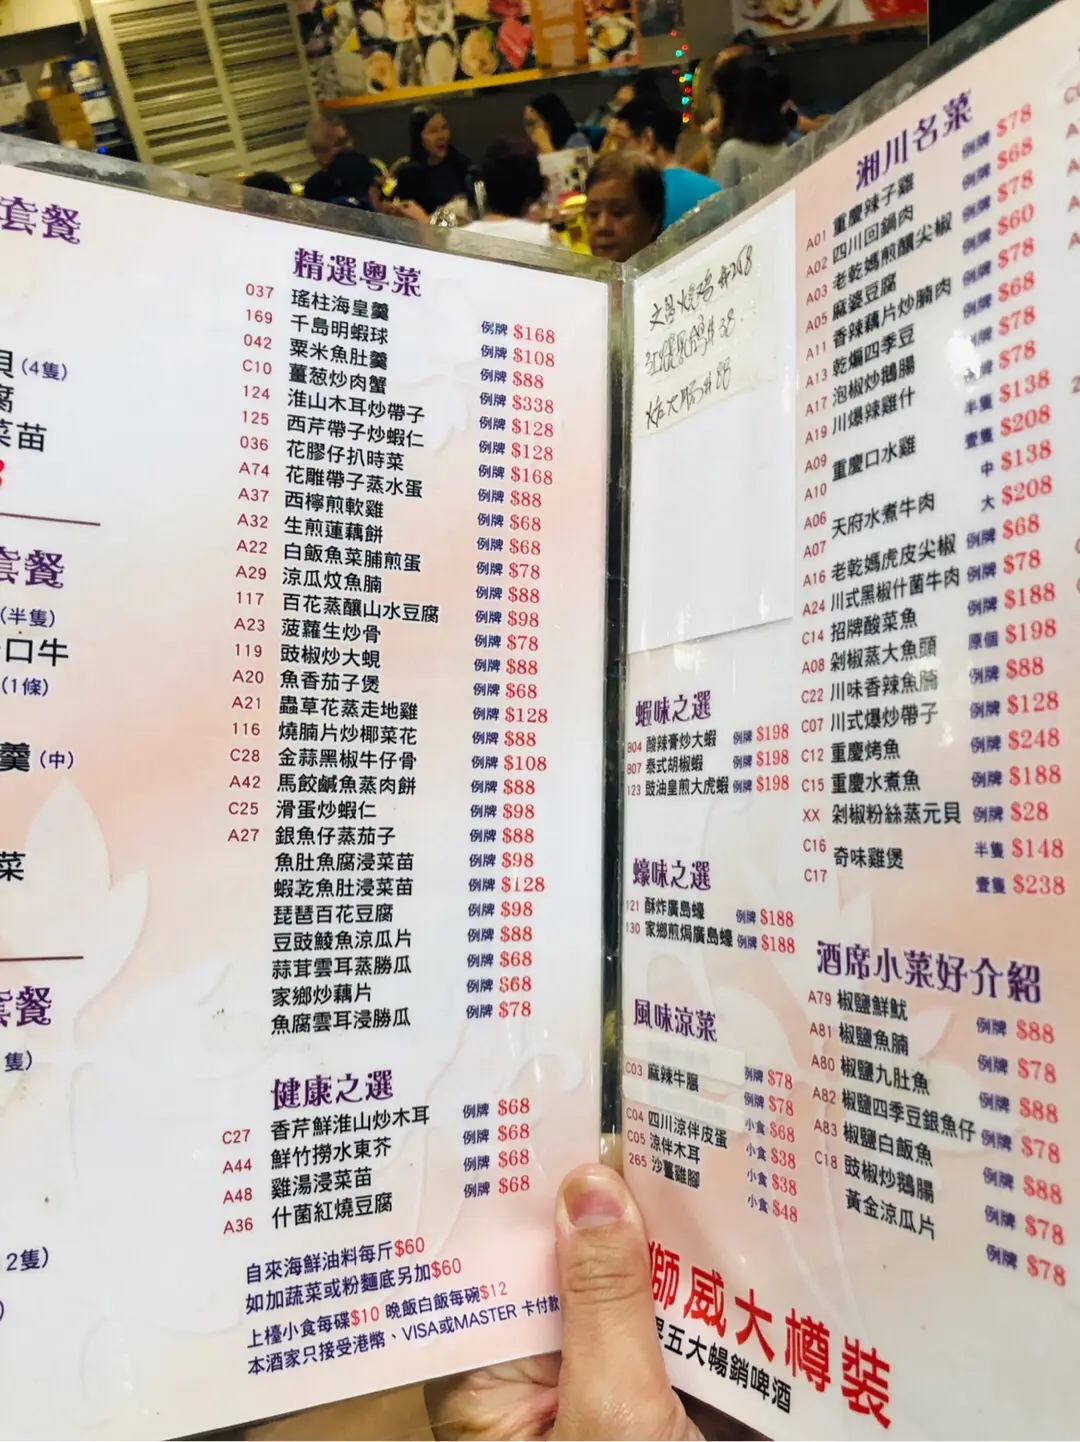 套餐
貝(4隻)
腐
菜苗
套餐
(半隻)
口牛
(1條)
羹(中)
菜
套餐
隻)
12隻)
精選粵菜
037 瑤柱海皇羹 例牌 $168
169 千島明蝦球 例牌 $108
042 粟米魚肚羹 例牌 $88
C10 薑葱炒肉蟹 例牌 $338
124 淮山木耳炒帶子 例牌 $128
125 西芹帶子炒蝦仁 例牌 $128
036 花膠仔扒時菜 例牌 $168
A74 花雕帶子蒸水蛋 例牌 $88
A37 西檸煎軟雞 例牌 $68
A32 生煎蓮藕餅 例牌 $68
A22 白飯魚菜脯煎蛋 例牌 $78
A29 涼瓜炆魚腩 例牌 $88
117 百花蒸釀山水豆腐 例牌 $98
A23 菠蘿生炒骨 例牌 $78
119 豉椒炒大蜆 例牌 $88
A20 魚香茄子煲 例牌 $68
A21 蟲草花蒸走地雞 例牌 $128
116 燒腩片炒椰菜花 例牌 $88
C28 金蒜黑椒牛仔骨 例牌 $108
A42 馬餃鹹魚蒸肉餅 例牌 $88
C25 滑蛋炒蝦仁 例牌 $98
A27 銀魚仔蒸茄子 例牌 $88
魚肚魚腐浸菜苗 例牌 $98
蝦乾魚肚浸菜苗 例牌 $128
琵琶百花豆腐 例牌 $98
豆豉鯪魚涼瓜片 例牌 $88
蒜茸雲耳蒸勝瓜 例牌 $68
家鄉炒藕片 例牌 $68
魚腐雲耳浸勝瓜 例牌 $78
健康之選
C27 香芹鮮淮山炒木耳 例牌 $68
A44 鮮竹撈水東芥 例牌 $68
A48 雞湯浸菜苗 例牌 $68
A36 什菌紅燒豆腐 例牌 $68
自來海鮮油料每斤$60
如加蔬菜或粉麵底另加$60
上檯小食每碟$10 晚飯白飯每碗$12
本酒家只接受港幣、VISA或MASTER 卡付款
蝦味之選
B04 酸辣膏炒大蝦 例牌 $198
B07 泰式胡椒蝦 例牌 $198
123 豉油皇煎大虎蝦 例牌 $198
蠔味之選
121 酥炸廣島蠔 例牌 $188
130 家鄉煎焗廣島蠔 例牌 $188
風味涼菜
C03 麻辣牛𦟌 例牌 $78
例牌 $78
C04 四川涼伴皮蛋 小食 $68
C05 涼伴木耳 小食 $38
265 沙薑雞腳 小食 $38
小食 $48
獅威大樽裝
五大暢銷啤酒
湘川名菜
A01 重慶辣子雞 例牌 $78
A02 四川回鍋肉 例牌 $68
A03 老乾媽煎釀尖椒 例牌 $78
A05 麻婆豆腐 例牌 $60
A11 香辣藕片炒腩肉 例牌 $78
A13 乾煸四季豆 例牌 $68
A17 泡椒炒鵝腸 例牌 $78
A19 川爆辣雞什 例牌 $78
A09 重慶口水雞 半隻 $138
A10 壹隻 $208
A06 天府水煮牛肉 中 $138
A07 大 $208
A16 老乾媽虎皮尖椒 例牌 $68
A24 川式黑椒什菌牛肉 例牌 $78
C14 招牌酸菜魚 例牌 $188
A08 剁椒蒸大魚頭 原個 $198
C22 川味香辣魚腩 例牌 $88
C07 川式爆炒帶子 例牌 $128
C12 重慶烤魚 例牌 $248
C15 重慶水煮魚 例牌 $188
XX 剁椒粉絲蒸元貝 例牌 $28
C16 奇味雞煲 半隻 $148
C17 壹隻 $238
酒席小菜好介紹
A79 椒鹽鮮魷 例牌 $88
A81 椒鹽魚腩 例牌 $78
A80 椒鹽九肚魚 例牌 $88
A82 椒鹽四季豆銀魚仔 例牌 $78
A83 椒鹽白飯魚 例牌 $88
C18 豉椒炒鵝腸 例牌 $78
黃金涼瓜片 例牌 $78